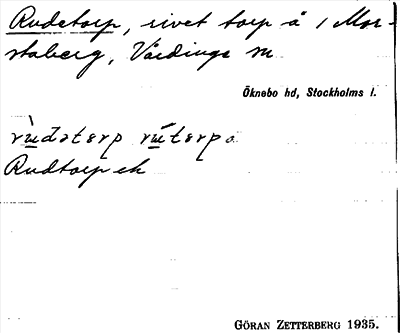 Rudetorp, rivet torp å 1 Mor-
staberg, Vårdinge sn
Öknebo hd, Stockholms l.
rùdətərp rútərpa
Rudtorp ek
GÖRAN ZETTERBERG 1935.